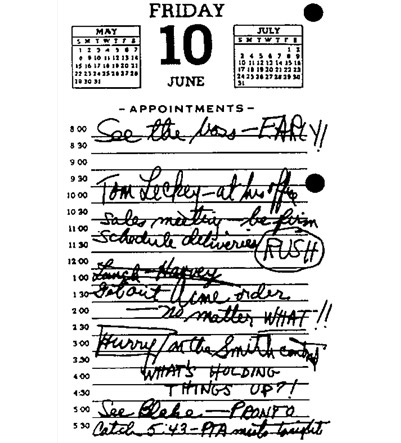 FRIDAY
MAY
S M T W T F S
1 2 3 4 5 6 7
8 9 10 11 12 13 14
15 16 17 18 19 20 21
22 23 24 25 26 27 28
29 30 31
10
JULY
S M T W T F S
1 2
3 4 5 6 7 8 9
10 11 12 13 14 15 16
17 18 19 20 21 22 23
24 25 26 27 28 29 30
31
JUNE
-APPOINTMENTS-
8 00 See the boss - EARLY!!
8 30
9 00
9 30
10 00 Tom Leckey - at his office
10 30 Sales meeting - be firm
11 00 Schedule deliveries RUSH
11 30
12 00
12 30 Lunch - Harvey
1 00 Get out Acme order
1 30
2 00 - no matter WHAT!!
2 30
3 00 Hurry on the Smith contract
3 30
4 00 WHAT'S HOLDING
4 30 THINGS UP?!
5 00 See Blake - PRONTO
5 30 Catch 5:43 - PTA mtg tonight